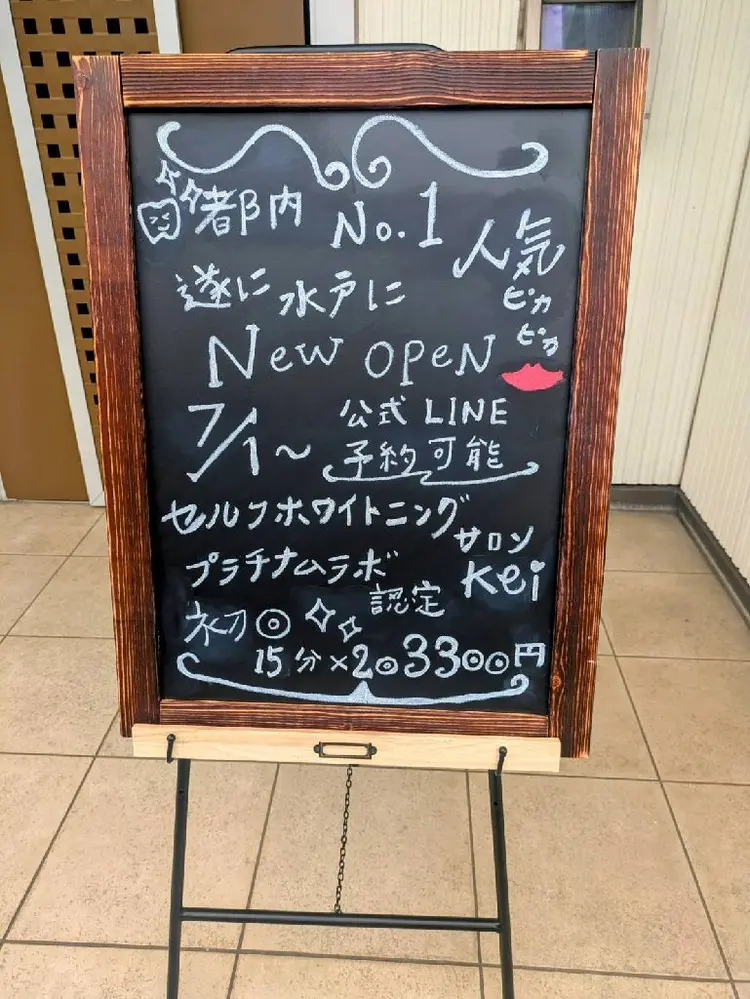 都内 No.1
人気
ピカ
ピカ
遂に 水戸に
New OPeN
7/1～
公式 LINE
予約可能
セルフホワイトニング
サロン
Kei
プラチナムラボ
認定
初回
15分×2回3300円